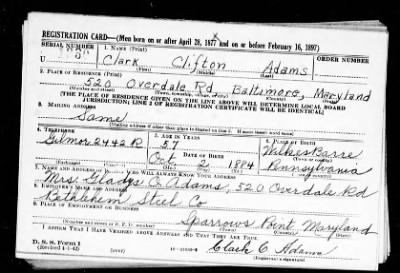 REGISTRATION CARD—(Men born on or after April 28, 1877 and on or before February 16, 1897)
SERIAL NUMBER 1. NAME (Print)
U Clark Clifton Adams
2. PLACE OF RESIDENCE (Print)
520 Overdale Rd, Baltimore, Maryland
[THE PLACE OF RESIDENCE GIVEN ON THE LINE ABOVE WILL DETERMINE LOCAL BOARD
JURISDICTION; LINE 2 OF REGISTRATION CERTIFICATE WILL BE IDENTICAL]
3. MAILING ADDRESS
Same
[Mailing address if other than place indicated on line 2. If same insert word same]
4. TELEPHONE 5. AGE IN YEARS 6. PLACE OF BIRTH
Gilmor 2442 R 57 Wilkes Barre
DATE OF BIRTH
Oct 2 1884 Pennsylvania
7. NAME AND ADDRESS OF PERSON WHO WILL ALWAYS KNOW YOUR ADDRESS
Mrs Gladys C. Adams, 520 Overdale Rd
8. EMPLOYER'S NAME AND ADDRESS
Bethlehem Steel Co
9. PLACE OF EMPLOYMENT OR BUSINESS
Sparrows Point, Maryland
I AFFIRM THAT I HAVE VERIFIED ABOVE ANSWERS AND THAT THEY ARE TRUE.
D. S. S. FORM 1
(Revised 4-1-42) (over) Clark C Adams